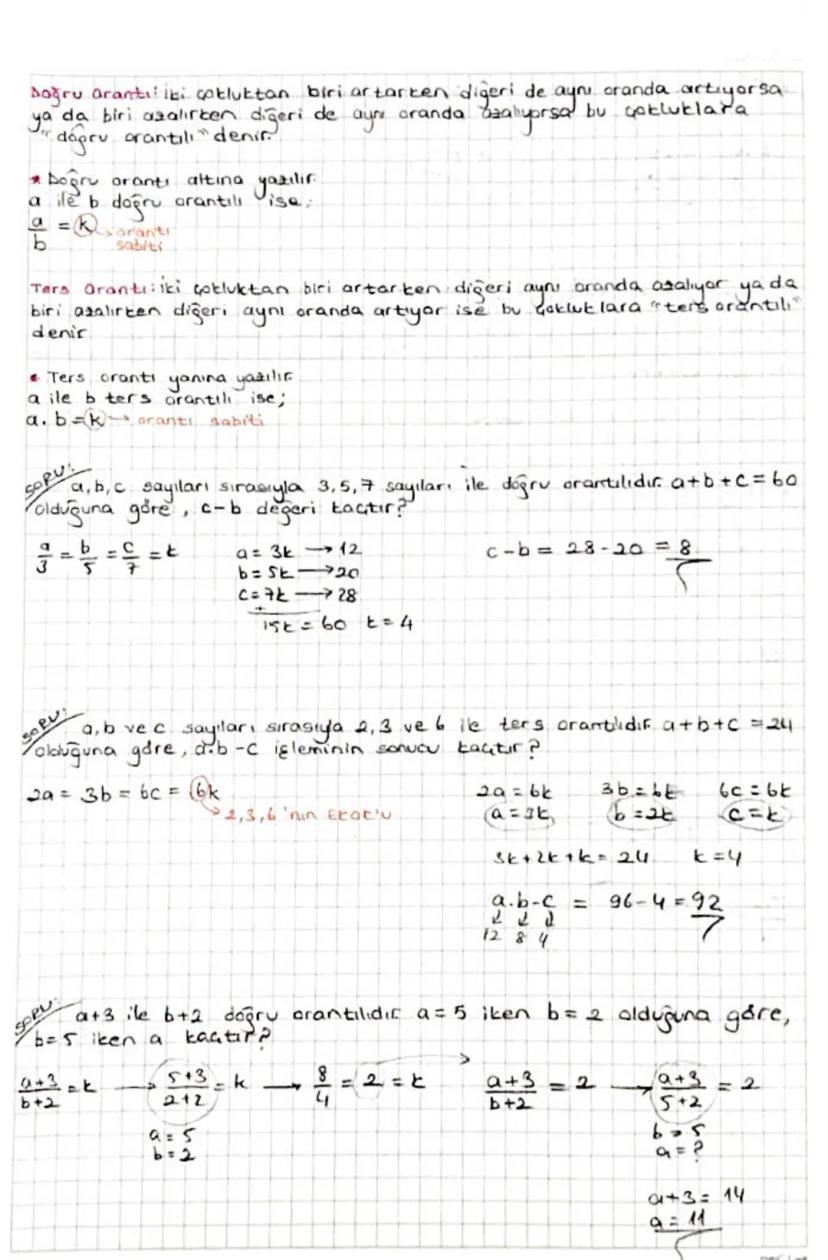 Doğru orantı: İki çokluktan biri artarken diğeri de aynı oranda artıyorsa
ya da biri azalırken diğeri de aynı oranda azalıyorsa bu çokluklara
"doğru orantılı" denir.
* Doğru orantı altına yazılır.
a ile b doğru orantılı ise;
a/b = k → orantı
sabiti
Ters Orantı: iki çokluktan biri artarken diğeri aynı oranda azalıyor ya da
biri azalırken diğeri aynı oranda artıyor ise bu çokluklara "ters orantılı"
denir
* Ters orantı yanına yazılır.
a ile b ters orantılı ise;
a.b = k → orantı sabiti
SORU: a,b,c sayıları sırasıyla 3,5,7 sayıları ile doğru orantılıdır. a+b+c=60
olduğuna göre, c-b değeri kaçtır?
a/3 = b/5 = c/7 = k a = 3k → 12 c-b = 28-20 = 8
b = 5k → 20
c = 7k → 28
+
15k = 60 k = 4
SORU: a,b ve c sayıları sırasıyla 2,3 ve 6 ile ters orantılıdır. a+b+c = 24
olduğuna göre, a.b-c işleminin sonucu kaçtır?
2a = 3b = 6c = 6k 2a = 6k 3b = 6k 6c = 6k
→ 2,3,6'nın Ekok'u a = 3k b = 2k c = k
3k+2k+k = 24 k = 4
a.b-c = 96-4 = 92
↓ ↓ ↓
12 8 4
SORU: a+3 ile b+2 doğru orantılıdır. a=5 iken b=2 olduğuna göre,
b=5 iken a kaçtır?
a+3/b+2 = k → 5+3/2+2 = k → 8/4 = 2 = k → a+3/b+2 = 2 → a+3/5+2 = 2
a = 5 b = 5
b = 2 a = ?
a+3 = 14
a = 11